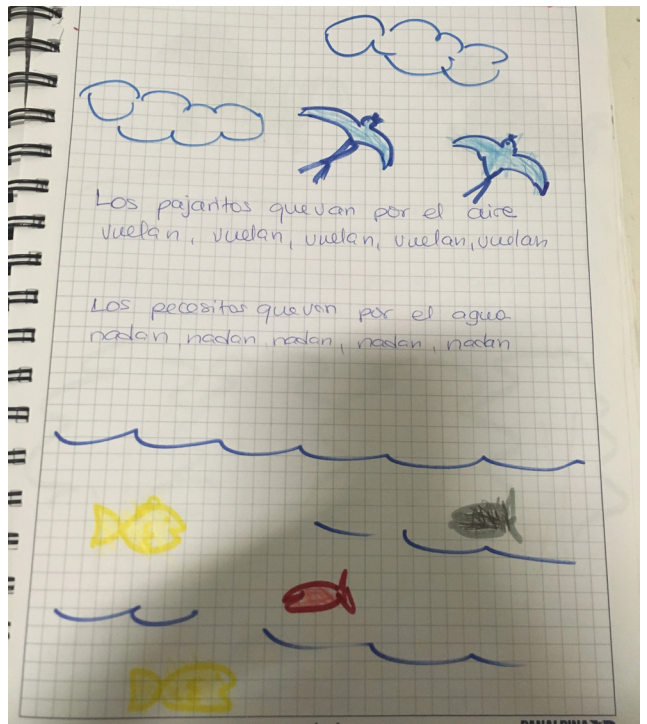 Los pajaritos que van por el aire
vuelan, vuelan, vuelan, vuelan, vuelan
Los pecesitos que van por el agua
nadan, nadan, nadan, nadan, nadan